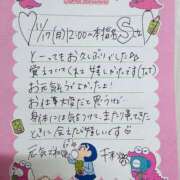 11/17(日)2:00〜本指名Sさま
とーってもお久しぶりでした
覚えててくれて嬉しかったです(TдT)
お元気そうでよかった!
お仕事大変だと思うけど
身体には気をつけて、また来てきた
ときに会えたら嬉しいです
元気でね
千